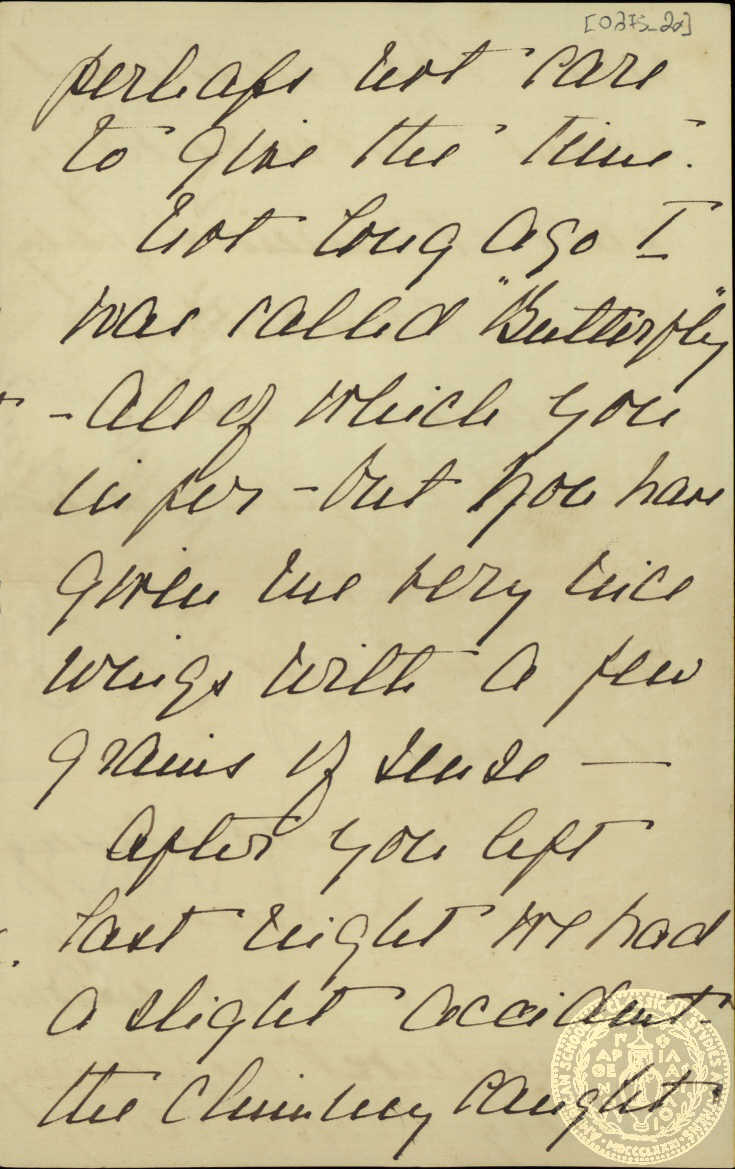 [0375_2r]
perhaps not care
to give the time.
Not long ago I
was called "Butterfly"
- All of which you
infer - but you have
given me very nice
wings with a few
grains of sense —
After you left
last night we had
a slight accident
the chimney caught